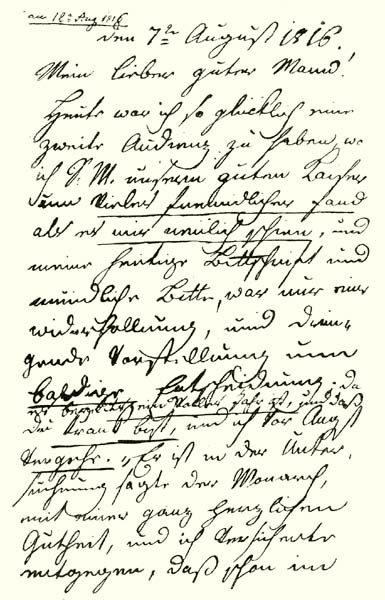 am 12t Aug 1816
den 7te August 1816.
Mein lieber guter Mann!
Heute war ich so glücklich eine
zweite Audienz zu haben, wo
ich S. M. unsern guten Kaiser
um Vieles freundlicher fand
als es mir neulich schien, und
meine heutige Bittschrift und
mündliche Bitte, war nur eine
widerhollung, und drin-
gende Vorstellung um
baldige Entscheidung. da
es bereits ein voller Jahr ist, und daß
du krank bist, und ich vor Angst
vergehe. „Er ist in der Unter-
suchung sagte der Monarch,
mit einer ganz herzlichen
Gutheit, und ich versicherte
entgegen, daß schon im